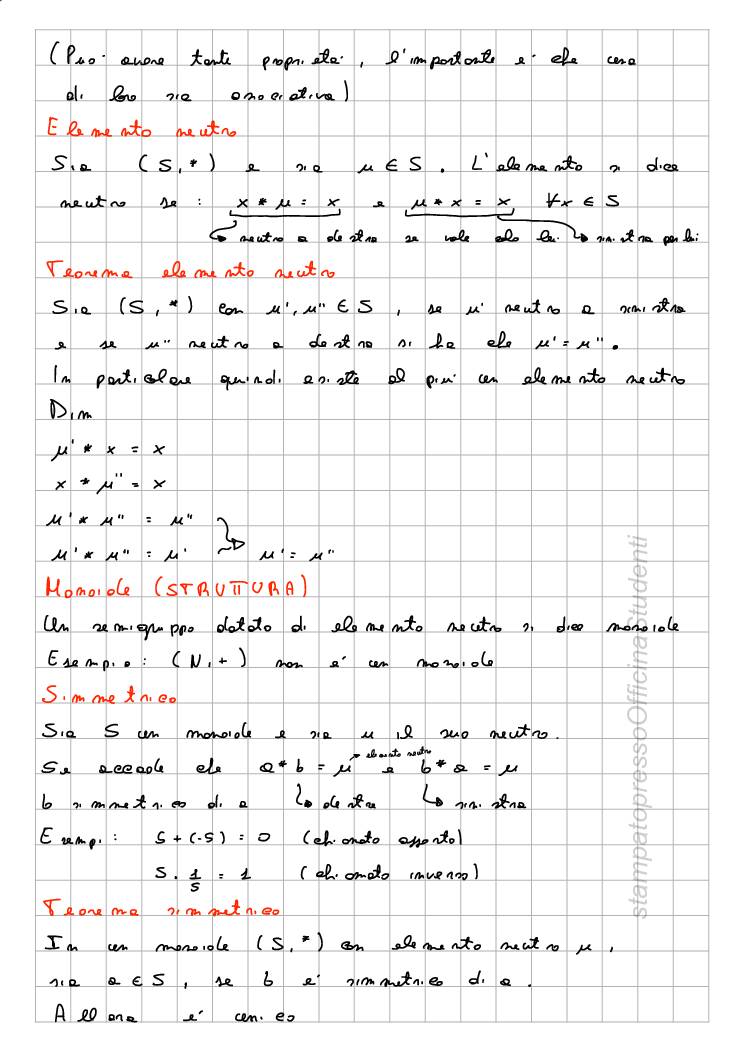 (Puo' avere tante proprieta', l'importante e' che una
di loro sia associativa)
Elemento neutro
Sia (S,*) e sia μ ∈ S. L'elemento si dice
neutro se: x * μ = x e μ * x = x ∀x ∈ S
neutro a destra se vale solo lei sinistra per lei
Teorema elemento neutro
Sia (S,*) con μ', μ'' ∈ S, se μ' neutro a sinistra
e se μ'' neutro a destra si ha che μ' = μ''.
In particolare quindi esiste al piu' un elemento neutro
Dim
μ' * x = x
x * μ'' = x
μ' * μ'' = μ''
μ' * μ'' = μ' μ' = μ''
Monoide (STRUTTURA)
Un semigruppo dotato di elemento neutro si dice monoide
Esempio: (N,+) non e' un monoide
Simmetrico
Sia S un monoide e sia μ il suo neutro.
elemento neutro
Se accade che a * b = μ e b * a = μ
b simmetrico di a destra sinistra
Esempi: 5 + (-5) = 0 (chiamato opposto)
5 · 1/5 = 1 (chiamato inverso)
Teorema simmetrico
In un monoide (S,*) con elemento neutro μ,
sia a ∈ S, se b e' simmetrico di a.
Allora e' unico
stampatopressoOfficinaStudenti